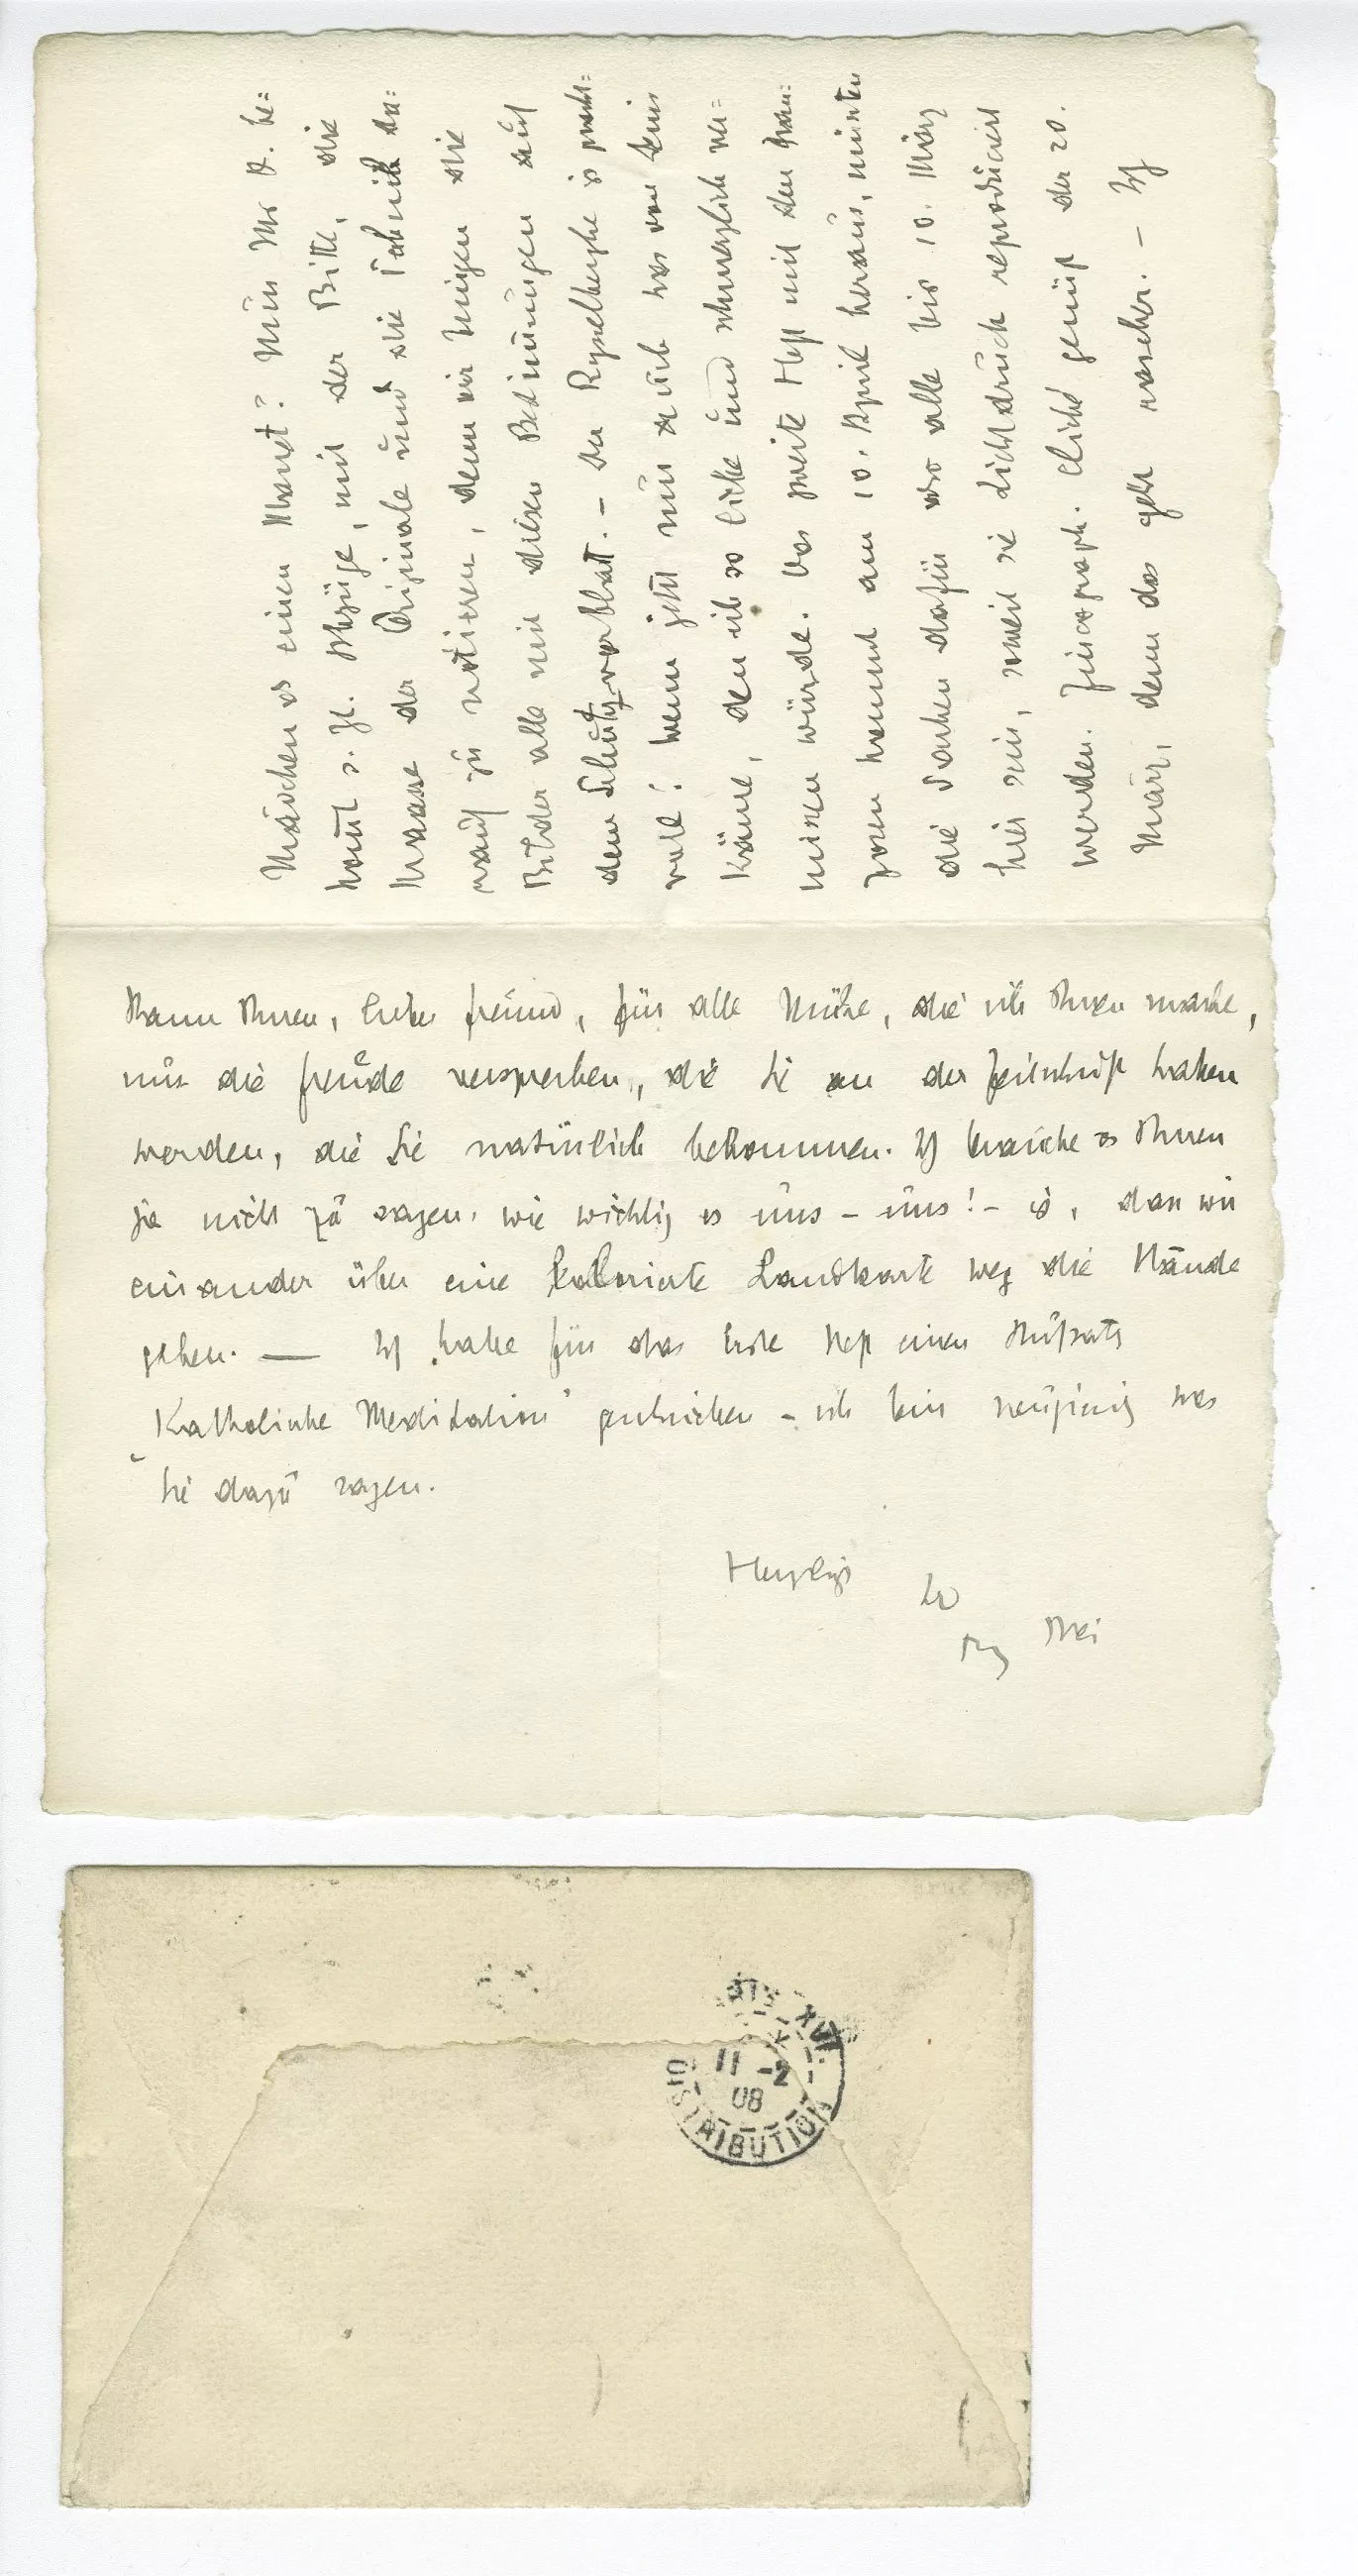 Mädchen es einen Manet? Nun Mr D. be=
kom̄t s. Zt. Abzüge, mit der Bitte, die
Masse der Originale und die Technik da=
rauf zu notieren, denn wir bringen die
Bilder alle mit diesen Bestim̄ungen auf
dem Schutzvorblatt. – Der Rysselberghe is pracht=
voll! Wenn jetzt nur auch was von Denis
käme, den ich so liebe und schmerzlich ver=
missen würde. Das zweite Heft mit den Fran=
zosen kommt am 10. April heraus, müssten
die Sachen dafür also alle bis 10. März
hier sein, soweit sie Lichtdruck reproduciert
werden. Zincograph. Cliché genügt der 20.
März, denn das geht rascher. – Ich
kann Ihnen, lieber Freund, für alle Mühe, die ich Ihnen mache,
nur die Freude versprechen, die Sie an der Zeitschrift haben
werden, die Sie natürlich bekommen. Ich brauche es Ihnen
ja nicht zu sagen, wie wichtig es uns – uns! – is, dass wir
einander über eine kolorierte Landkarte weg die Hände
geben. — Ich habe für das erste Heft einen Aufsatz
„Katholische Meditation" geschrieben – ich bin neugierig was
Sie dazu sagen.
Herzlichst Ihr
Blei
XVI
11 -2
08
DISTRIBUTION